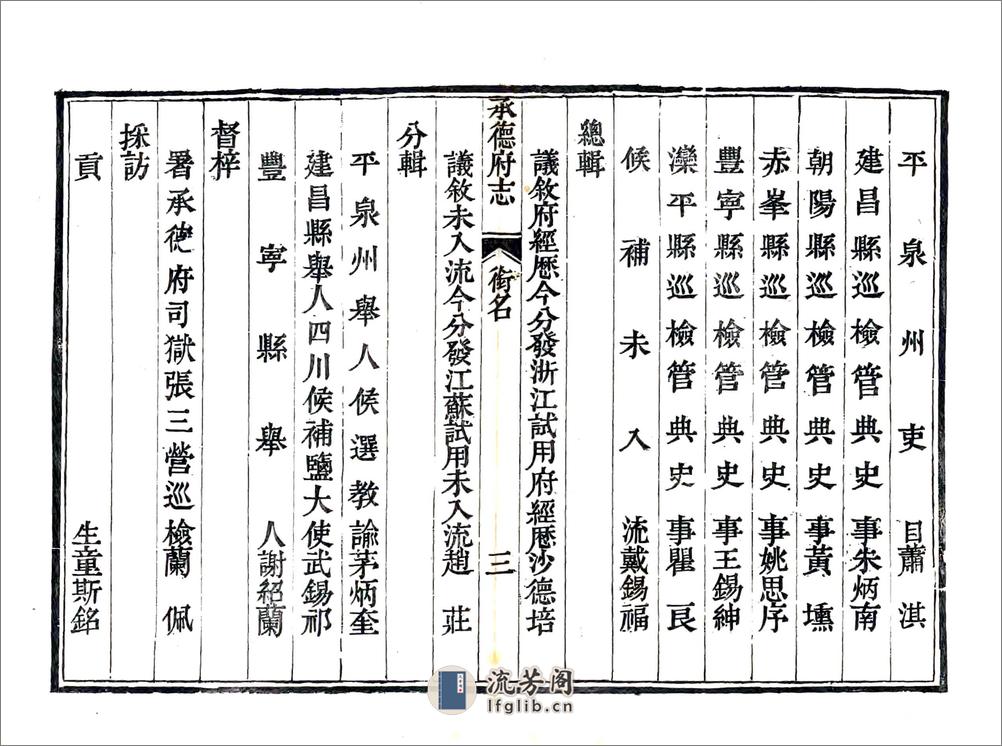 平泉州吏目蕭淇
建昌縣巡檢管典史事朱炳南
朝陽縣巡檢管典史事黃壎
赤峯縣巡檢管典史事姚思序
豐寧縣巡檢管典史事王錫紳
灤平縣巡檢管典史事瞿良
候補未入流戴錫福
總輯
議敘府經歷今分發浙江試用府經歷沙德培
承德府志 銜名 三
議敘未入流今分發江蘇試用未入流趙莊
分輯
平泉州舉人候選教諭茅炳奎
建昌縣舉人四川候補鹽大使武錫祁
豐寧縣舉人謝紹蘭
督梓
署承德府司獄張三營巡檢蘭佩
採訪
貢生童斯銘
流芳阁
lfglib.cn